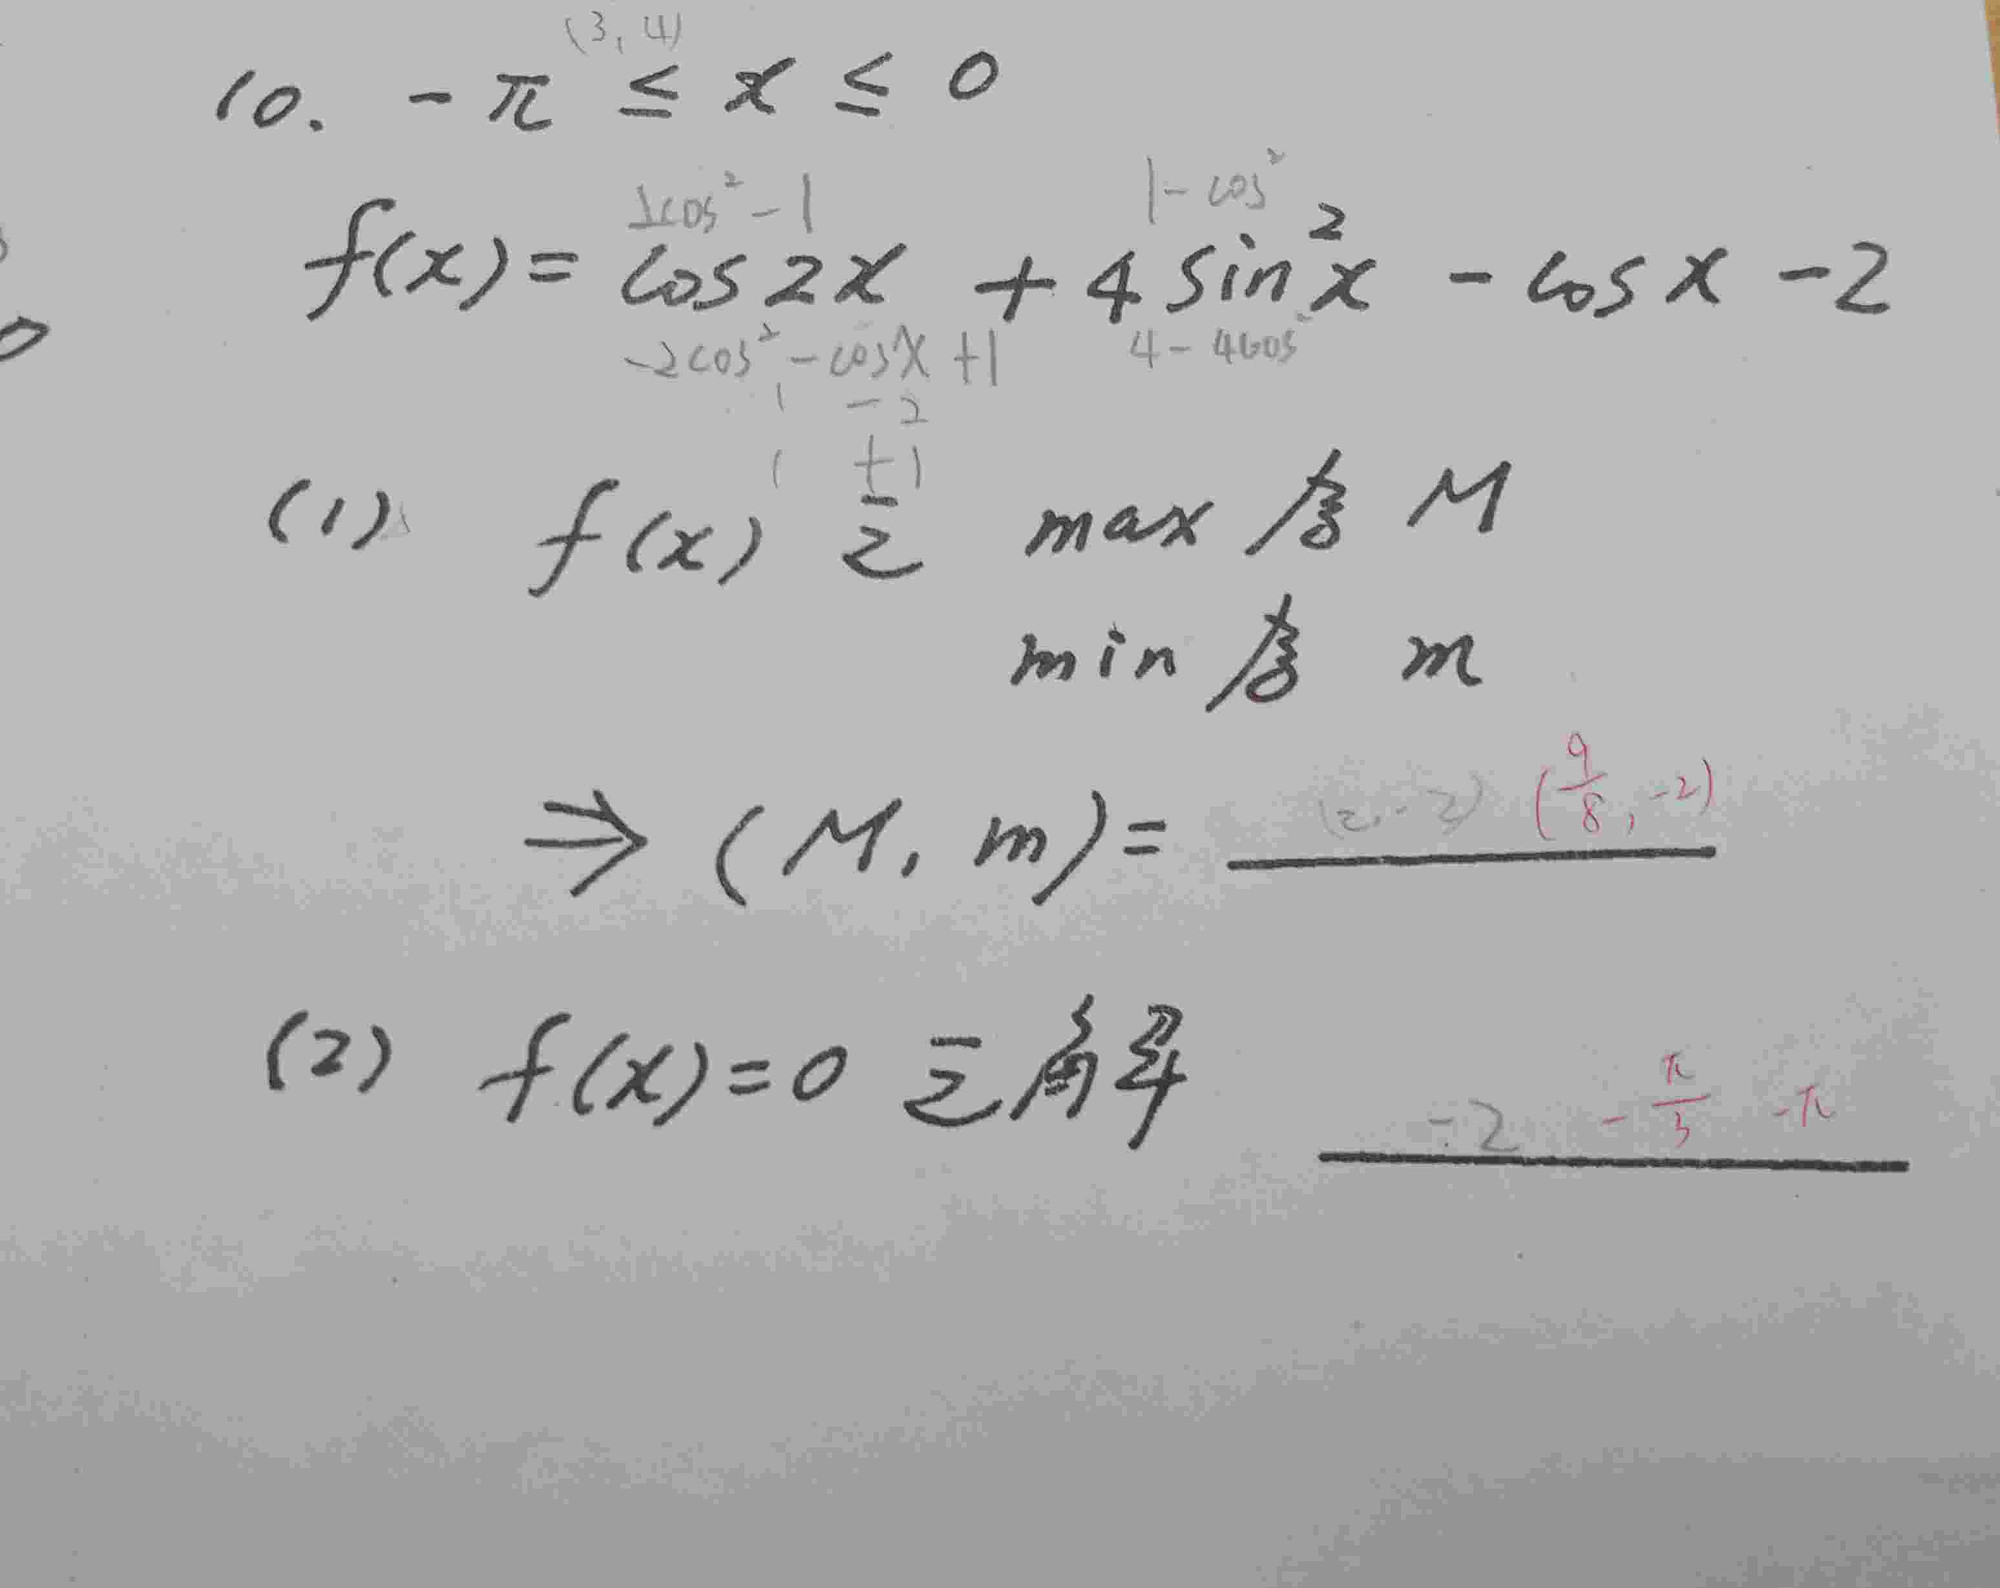 (3, 4)
10. -π ≤ x ≤ 0
2cos² - 1
1 - cos²
f(x) = cos2x + 4sin²x - cosx - 2
-2cos² - cosx + 1
4 - 4cos²
1 -2
1 +1
(1) f(x) 之 max 為 M
min 為 m
⇒ (M, m) = (2, -2) (9/8, -2)
(2) f(x) = 0 之解 -2 -π/3 -π